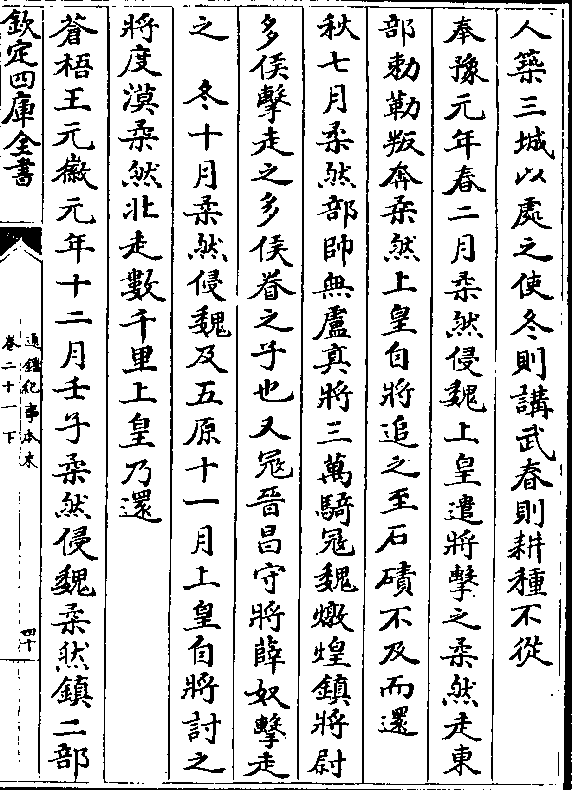 人築三城以處之使冬則講武春則耕種不從
奉豫元年春二月柔然侵魏上皇遣將擊之柔然走東
部勅勒叛奔柔然上皇自將追之至石磧不及而還
秋七月柔然部帥無盧真將三萬騎冦魏燉煌鎮將尉
多侯擊走之多侯眷之子也又冦晉昌守將薛奴擊走
之 冬十月柔然侵魏及五原十一月上皇自將討之
將度漠柔然北走數千里上皇乃還
蒼梧王元徽元年十二月壬子柔然侵魏柔然鎮二部
欽定四庫全書
通鑑紀事本末
卷二十一下
四十